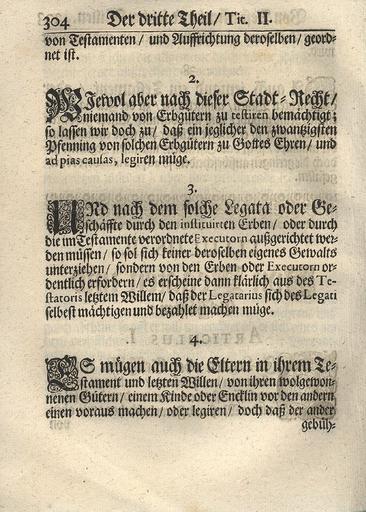 304 Der dritte Theil / Tit. II.
von Testamenten / und Auffrichtung deroselben / geord-
net ist.
2.
WIewol aber nach dieser Stadt-Recht /
niemand von Erbgütern zu testiren bemächtigt;
so lassen wir doch zu / daß ein jeglicher den zwantzigsten
Pfenning von solchen Erbgütern zu Gottes Ehren / und
ad pias causas, legiren müge.
3.
UNd nach dem solche Legata oder Ge-
schäffte durch den instituirten Erben / oder durch
die im Testamente verordnete Executorn außgerichtet wer-
den müssen / so sol sich keiner deroselben eigenes Gewalts
unterziehen / sondern von den Erben oder Executorn or-
dentlich erfordern / es erscheine dann klärlich aus des Te-
statoris letztem Willem / daß der Legatarius sich des Legati
selbest mächtigen und bezahlet machen müge.
4.
ES mügen auch die Eltern in ihrem Te-
stament und letzten Willen / von ihren wolgewon-
nenen Gütern / einem Kinde oder Encklin vor den andern
einen voraus machen / oder legiren / doch daß der ander
gebüh-